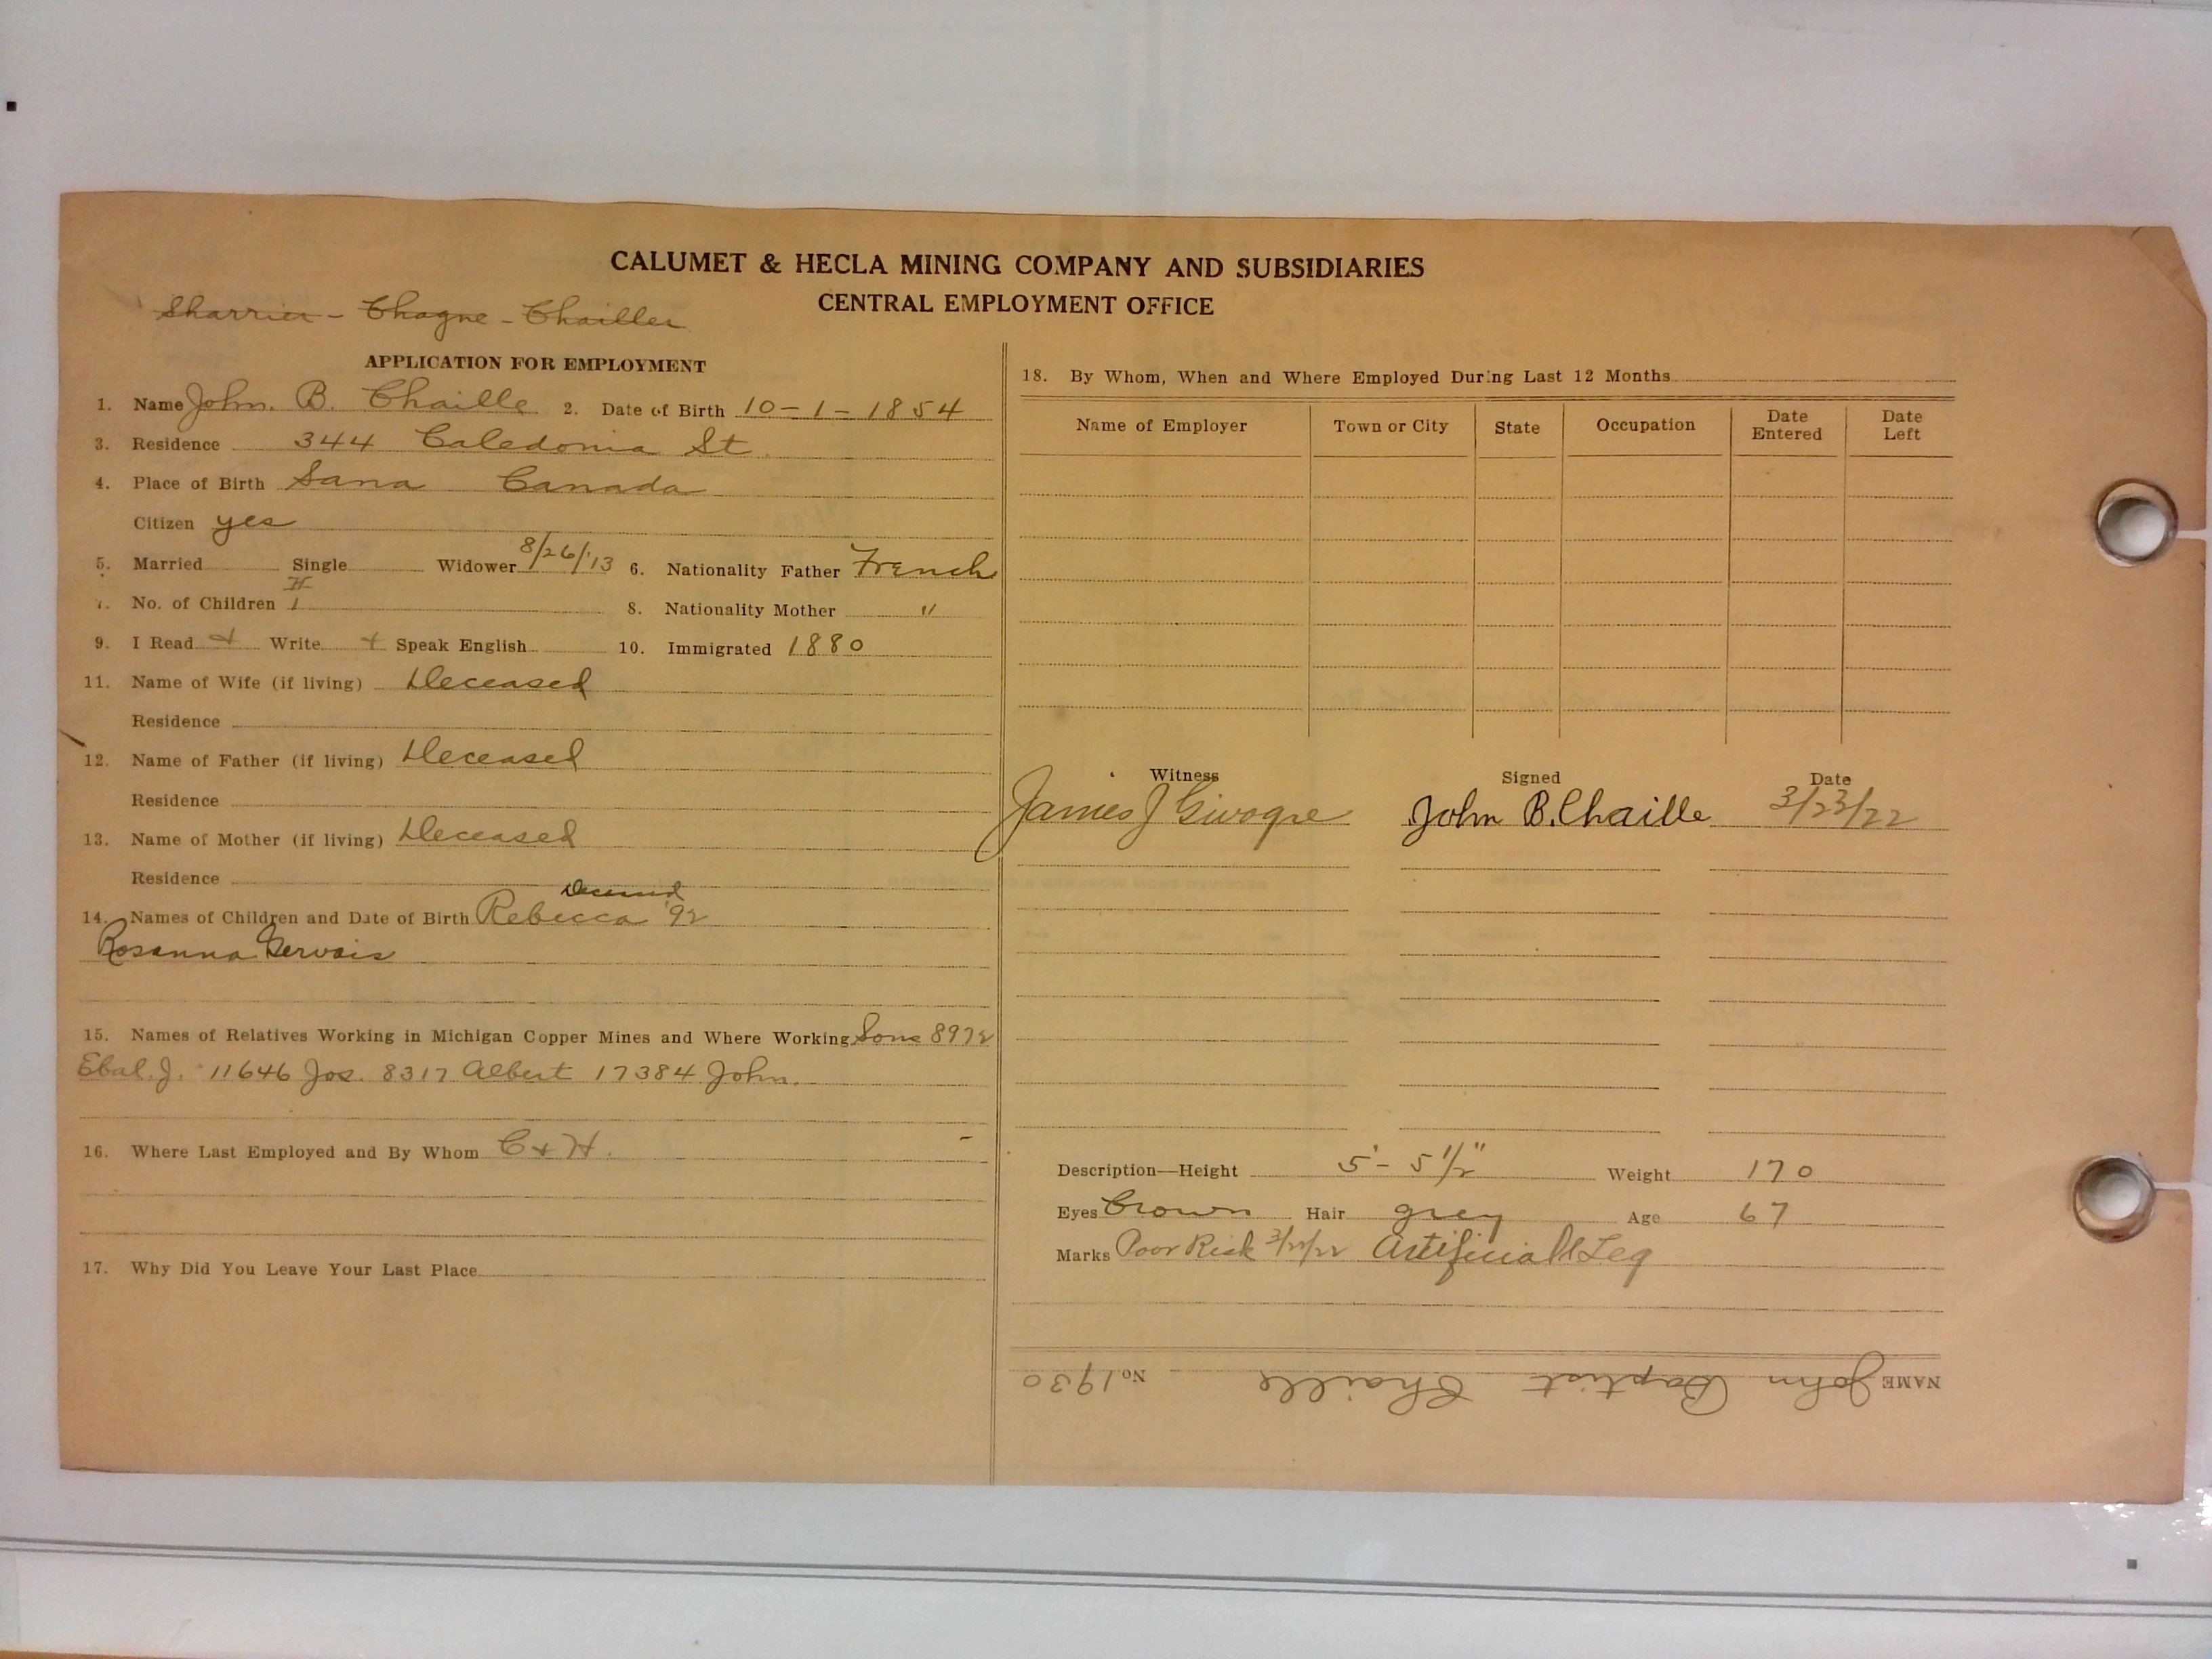 CALUMET & HECLA MINING COMPANY AND SUBSIDIARIES
CENTRAL EMPLOYMENT OFFICE
Sharrier - Chagne - Chailler
APPLICATION FOR EMPLOYMENT
1. Name John. B. Chaille 2. Date of Birth 10-1-1854
3. Residence 344 Caledonia St.
4. Place of Birth Sana Canada
Citizen yes
5. Married Single Widower 8/26/'13 6. Nationality Father French
7. No. of Children 1 8. Nationality Mother "
9. I Read + Write + Speak English 10. Immigrated 1880
11. Name of Wife (if living) Deceased
Residence
12. Name of Father (if living) Deceased
Residence
13. Name of Mother (if living) Deceased
Residence
Deceased
14. Names of Children and Date of Birth Rebecca '92
Rosanna Gervais
15. Names of Relatives Working in Michigan Copper Mines and Where Working Sons 8972
Ebal. J. 11646 Jos. 8317 Albert 17384 John.
16. Where Last Employed and By Whom C + H.
17. Why Did You Leave Your Last Place
18. By Whom, When and Where Employed During Last 12 Months
Name of Employer Town or City State Occupation Date Entered Date Left
Witness Signed Date
James J John B. Chaille 3/23/22
Description—Height 5'- 5 1/2" Weight 170
Eyes Brown Hair grey Age 67
Marks Poor Risk 3/22/22 Artificial Leg
NAME John Baptist Chaille No. 1930